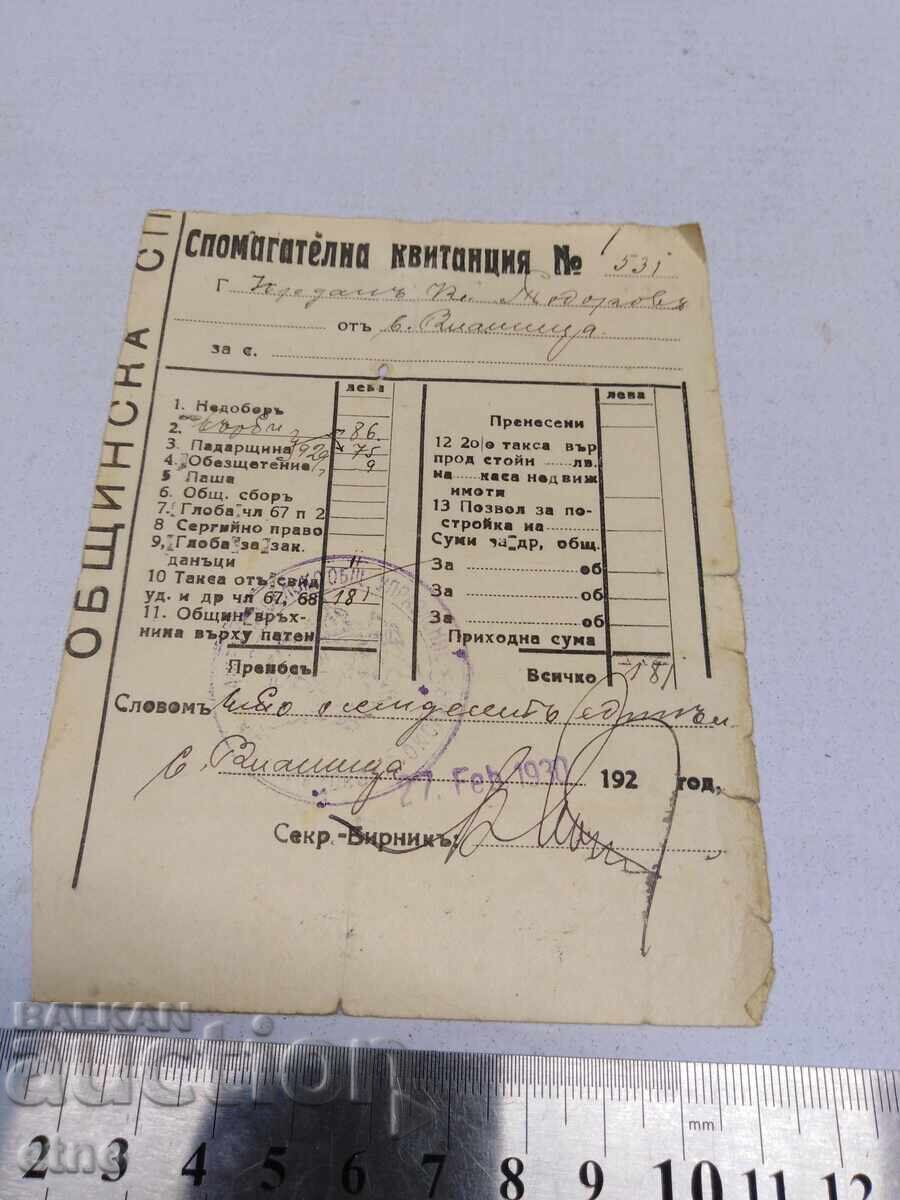 ОБЩИНСКА СП
Спомагателна квитанция № 531
Г
отъ с.
за с.
лева
1. Недоборъ
2. 86.
3. Падарщина 1929 75
4. Обезщетение 9
5 Паша
6. Общ. сборъ
7. Глоба чл 67 п 2
8 Сергийно право
9, Глоба за зак.
данъци
10 Такса отъ свид
уд. и др чл 67, 68 181
11. Общин връх-
нина върху патен
Преносъ
лева
Пренесени
12 2о/о такса вър
прод стойн ...... лв.
на ...... каса недвиж
имоти
13 Позвол за по-
стройка на
Суми за др, общ.
За об
За об
За об
Приходна сума
Всичко 181
Словомъ сто осемдесетъ
с. 27. Feb. 1930 192 год.
Секр.-Бирникъ:
BALKAN
auction
etno
mm
2 3 4 5 6 7 8 9 10 11 12